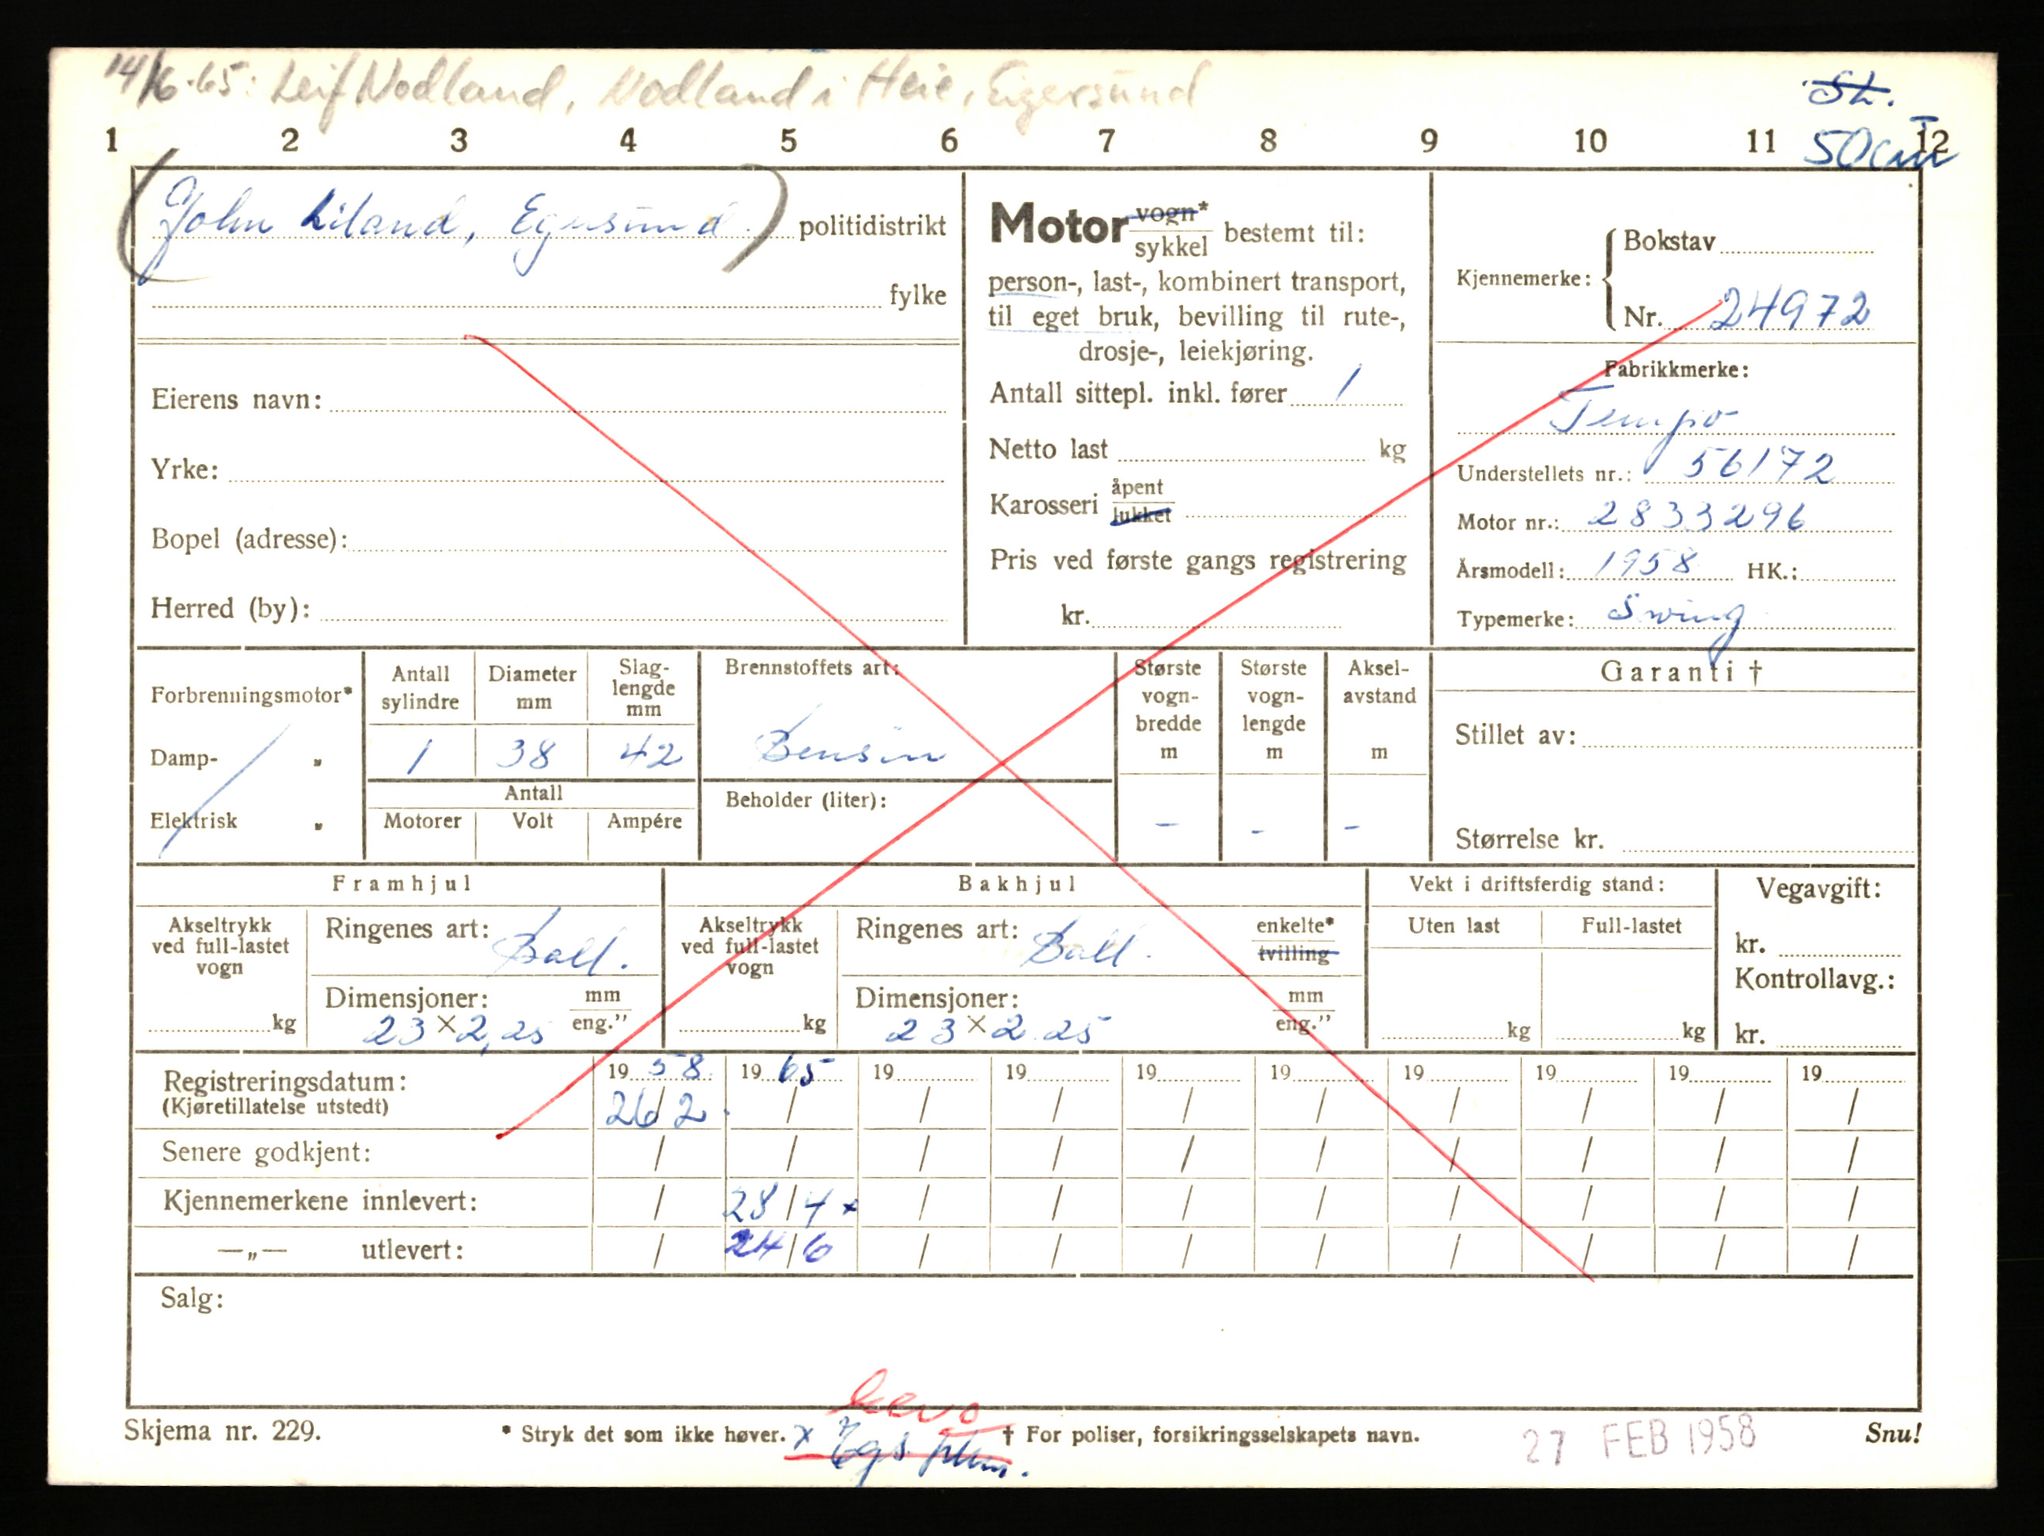 14/6-65: Leif Nodland, Nodland i Heie, Eigersund
St.
50cm
1 2 3 4 5 6 7 8 9 10 11 12
(John Liland, Egersund.) politidistrikt
fylke
Eierens navn:
Yrke:
Bopel (adresse):
Herred (by):
Motor vogn* sykkel bestemt til:
person-, last-, kombinert transport,
til eget bruk, bevilling til rute-,
drosje-, leiekjøring.
Antall sittepl. inkl. fører 1
Netto last kg
Karosseri åpent lukket
Pris ved første gangs registrering
kr.
Kjennemerke: Bokstav
Nr. 24972
Fabrikkmerke:
Tempo
Understellets nr.: 56172
Motor nr.: 2833296
Årsmodell: 1958 HK.:
Typemerke: Swing
Forbrenningsmotor*
Damp- „
Elektrisk „
Antall sylindre Diameter mm Slag-lengde mm
1 38 42
Antall
Motorer Volt Ampére
Brennstoffets art:
Bensin
Beholder (liter):
Største vogn-bredde m
Største vogn-lengde m
Aksel-avstand m
- - -
Garanti †
Stillet av:
Størrelse kr.
Framhjul
Akseltrykk ved full-lastet vogn
kg
Ringenes art: Ball.
Dimensjoner: mm eng.”
23 × 2,25
Bakhjul
Akseltrykk ved full-lastet vogn
kg
Ringenes art: Ball. enkelte* tvilling
Dimensjoner: mm eng.”
23 × 2.25
Vekt i driftsferdig stand:
Uten last Full-lastet
kg kg
Vegavgift:
kr.
Kontrollavg.:
kr.
Registreringsdatum: 19 58 19 65 19 19 19 19 19 19 19 19
(Kjøretillatelse utstedt) 26/2 / / / / / / / / /
Senere godkjent: / / / / / / / / / /
Kjennemerkene innlevert: / 28/4 x / / / / / / / /
—„— utlevert: / 24/6 / / / / / / / /
Salg:
Skjema nr. 229.
* Stryk det som ikke høver. x Egs. † For poliser, forsikringsselskapets navn.
27 FEB 1958
Snu!